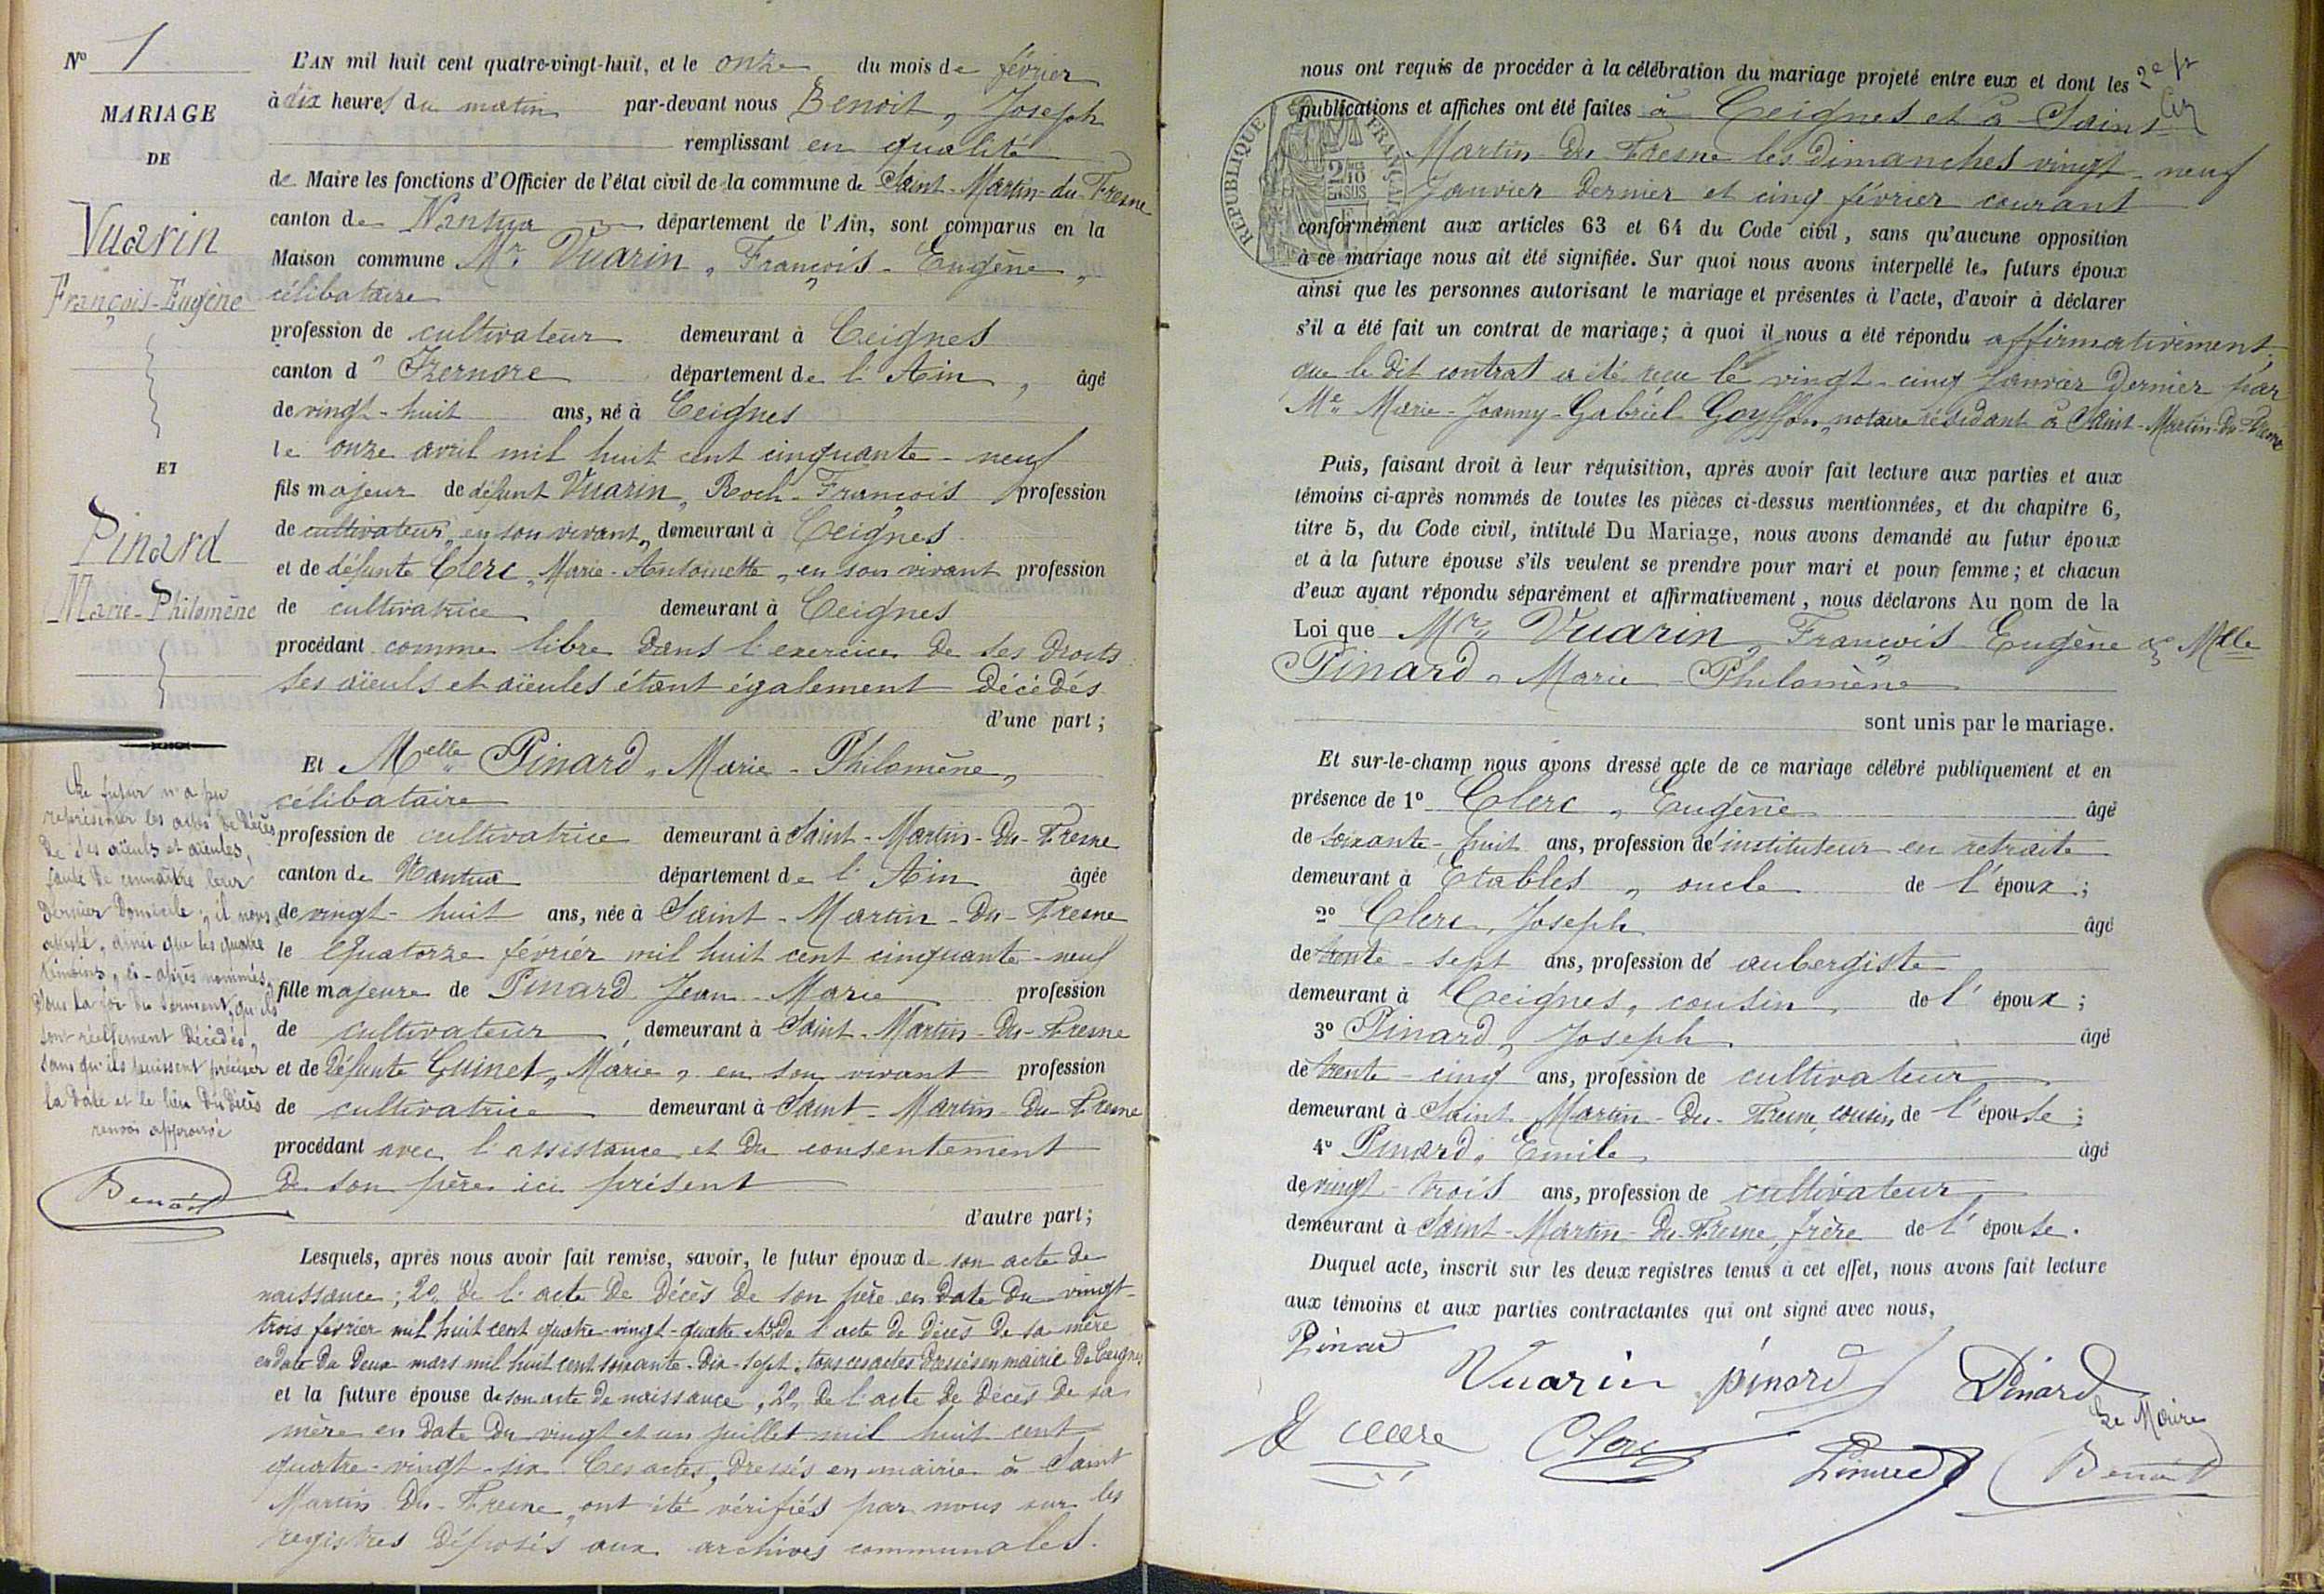 N° 1
MARIAGE
DE
Vuarin
François-Eugène
ET
Pinard
Marie-Philomène
Le futur n'a pu
représenter les actes de décès
de ses aïeuls et aïeules,
faute de connaître leur
dernier domicile, il nous a
attesté, ainsi que les quatre
témoins, ci-après nommés,
sous la foi du serment, qu'ils
sont réellement décédés,
sans qu'ils puissent préciser
la date et le lieu du décès
renvoi approuvé
Benoit
L'AN mil huit cent quatre-vingt-huit, et le onze du mois de février
à dix heures du matin par-devant nous Benoit, Joseph
remplissant en qualité
de Maire les fonctions d'Officier de l'état civil de la commune de Saint-Martin-du-Fresne
canton de Nantua département de l'Ain, sont comparus en la
Maison commune Mr. Vuarin, François-Eugène,
célibataire
profession de cultivateur demeurant à Ceignes
canton d'Izernore département de l'Ain, âgé
de vingt-huit ans, né à Ceignes
le onze avril mil huit cent cinquante-neuf
fils majeur de défunt Vuarin, Roch-François profession
de cultivateur, en son vivant, demeurant à Ceignes
et de défunte Clerc, Marie-Antoinette, en son vivant profession
de cultivatrice demeurant à Ceignes
procédant comme libre dans l'exercice de ses droits
ses aïeuls et aïeules étant également décédés
d'une part;
Et Melle Pinard, Marie-Philomène,
célibataire
profession de cultivatrice demeurant à Saint-Martin-du-Fresne
canton de Nantua département de l'Ain âgée
de vingt-huit ans, née à Saint-Martin-du-Fresne
le quatorze février mil huit cent cinquante-neuf
fille majeure de Pinard Jean-Marie profession
de cultivateur, demeurant à Saint-Martin-du-Fresne
et de défunte Guinet, Marie, en son vivant profession
de cultivatrice demeurant à Saint-Martin-du-Fresne
procédant avec l'assistance et du consentement
de son père ici présent
d'autre part;
Lesquels, après nous avoir fait remise, savoir, le futur époux de son acte de
naissance; 2° de l'acte de décès de son père en date du vingt-
trois février mil huit cent quatre-vingt-quatre et 3° de l'acte de décès de sa mère
en date du deux mars mil huit cent soixante-dix-sept; tous ces actes dressés en mairie de Ceignes
et la future épouse de son acte de naissance, 2° de l'acte de décès de sa
mère en date du vingt et un juillet mil huit cent
quatre-vingt-six. Ces actes, dressés en mairie à Saint
Martin-du-Fresne, ont été vérifiés par nous sur les
registres déposés aux archives communales.
nous ont requis de procéder à la célébration du mariage projeté entre eux et dont les
publications et affiches ont été faites à Ceignes et à Saint
Martin-du-Fresne les dimanches vingt-neuf
Janvier dernier et cinq février courant
RÉPUBLIQUE FRANÇAISE
conformément aux articles 63 et 64 du Code civil, sans qu'aucune opposition
à ce mariage nous ait été signifiée. Sur quoi nous avons interpellé les futurs époux
ainsi que les personnes autorisant le mariage et présentes à l'acte, d'avoir à déclarer
s'il a été fait un contrat de mariage; à quoi il nous a été répondu affirmativement
que le dit contrat a été reçu le vingt-cinq Janvier dernier par
Me. Marie-Joanny-Gabriel Goyffon, notaire résidant à Saint-Martin-du-Fresne
Puis, faisant droit à leur réquisition, après avoir fait lecture aux parties et aux
témoins ci-après nommés de toutes les pièces ci-dessus mentionnées, et du chapitre 6,
titre 5, du Code civil, intitulé Du Mariage, nous avons demandé au futur époux
et à la future épouse s'ils veulent se prendre pour mari et pour femme; et chacun
d'eux ayant répondu séparément et affirmativement, nous déclarons Au nom de la
Loi que Mr. Vuarin, François Eugène & Mlle
Pinard, Marie-Philomène
sont unis par le mariage.
Et sur-le-champ nous avons dressé acte de ce mariage célébré publiquement et en
présence de 1° Clerc, Eugène âgé
de soixante-huit ans, profession d'instituteur en retraite
demeurant à Etables, oncle de l'époux;
2° Clerc, Joseph âgé
de trente-sept ans, profession d'aubergiste
demeurant à Ceignes, cousin, de l'époux;
3° Pinard, Joseph âgé
de trente-cinq ans, profession de cultivateur
demeurant à Saint-Martin-du-Fresne, cousin, de l'épouse;
4° Pinard, Emile âgé
de vingt-trois ans, profession de cultivateur
demeurant à Saint-Martin-du-Fresne, frère de l'épouse.
Duquel acte, inscrit sur les deux registres tenus à cet effet, nous avons fait lecture
aux témoins et aux parties contractantes qui ont signé avec nous,
Pinard
Vuarin pinard Pinard
Le Maire
Clerc Pinard Benoit